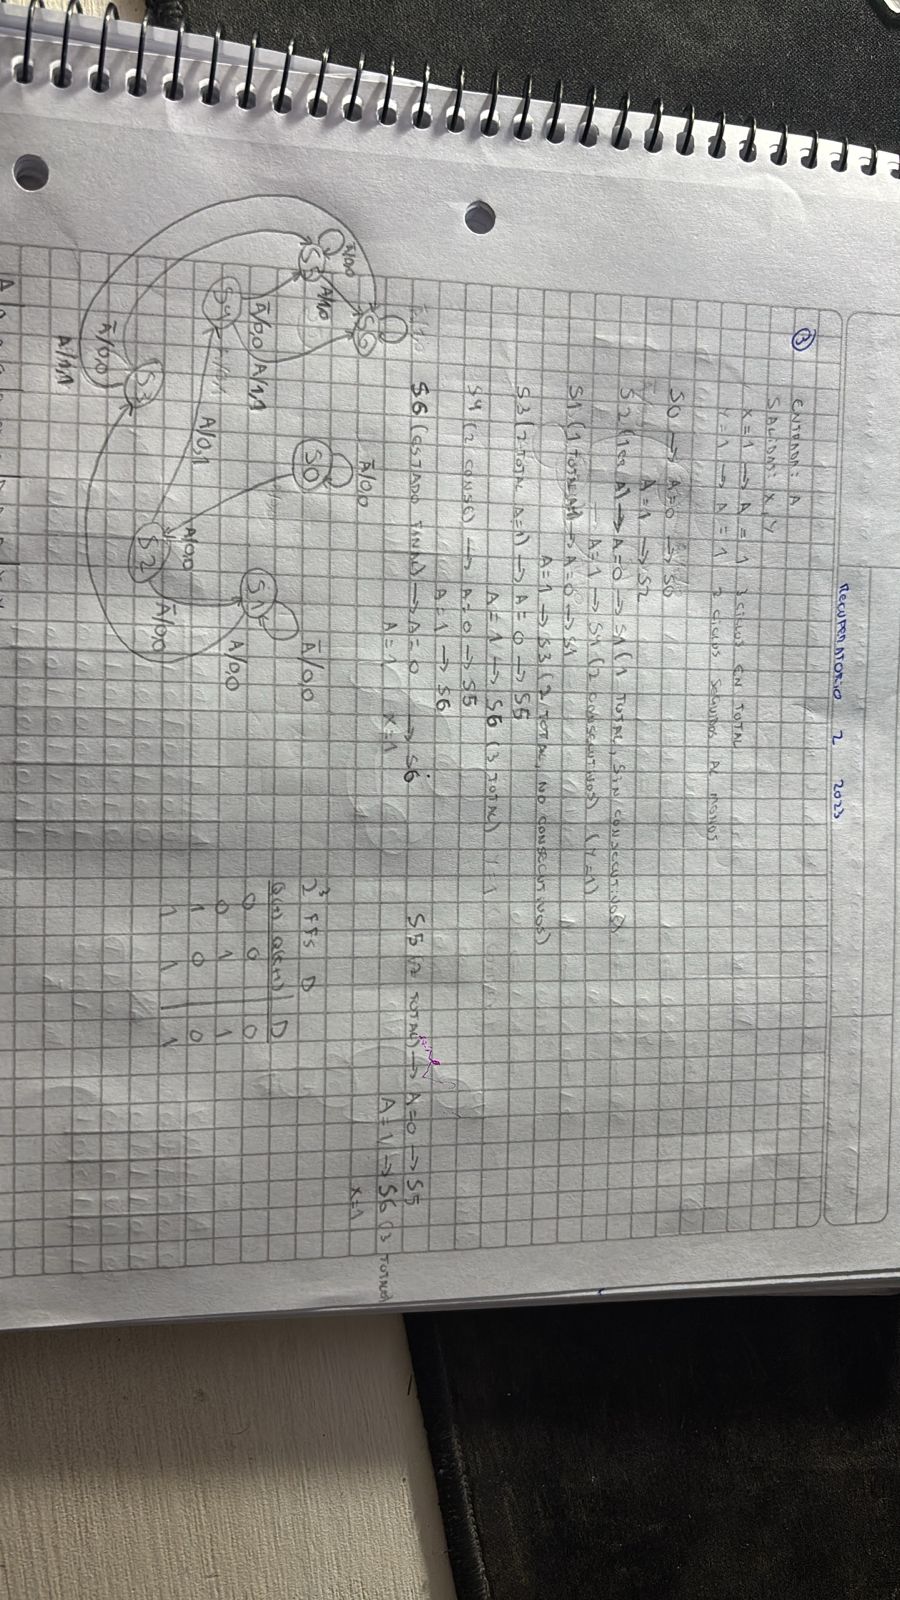 RECUPERATORIO 2 2023
3
ENTRADA: A
SALIDAS: X, Y
X=1 → A = 1 3 CICLOS EN TOTAL
Y=1 → A = 1 2 CICLOS SEGUIDOS AL MENOS
S0 → A=0 → S0
A=1 → S2
S2 (1er A) → A=0 → S1 (1 TOTAL, SIN CONSECUTIVOS)
A=1 → S4 (2 CONSECUTIVOS) (Y=1)
S1 (1 TOTAL A=1) → A=0 → S1
A=1 → S3 (2 TOTAL, NO CONSECUTIVOS)
S3 (2 TOTAL A=1) → A=0 → S5
A=1 → S6 (3 TOTAL) Y=1
S4 (2 CONSE) → A=0 → S5
A=1 → S6
S6 (ESTADO FINAL) → A=0 → S6
A=1 X=1
S5 (2 TOTAL) → A=0 → S5
A=1 → S6 (3 TOTAL)
X=1
S6
Ā/0,0
Ā/0,0
S5
A/1,0
S0
Ā/0,0
S1
A/0,0
Ā/0,0
A/1,1
S4
A/0,1
A/0,0
Ā/0,0
S2
S3
Ā/0,0
A/1,1
2³ FFS D
Q(t) Q(t+1) D
0 0 0
0 1 1
1 0 0
1 1 1
A